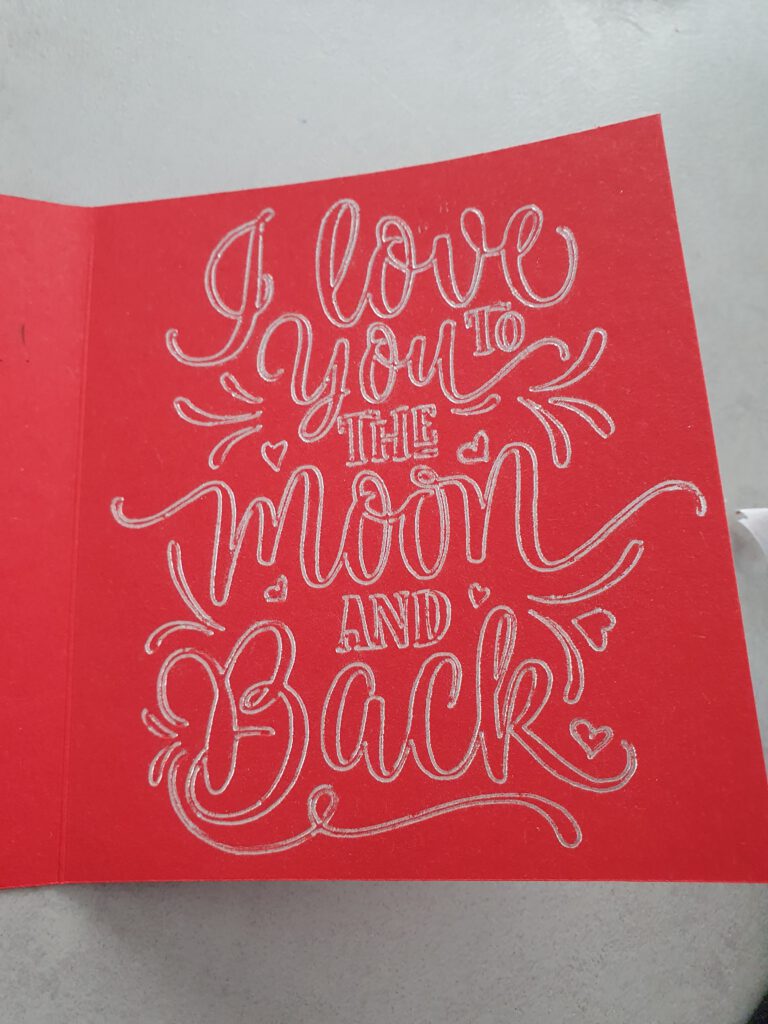 I love
you to
THE
moon
AND
Back